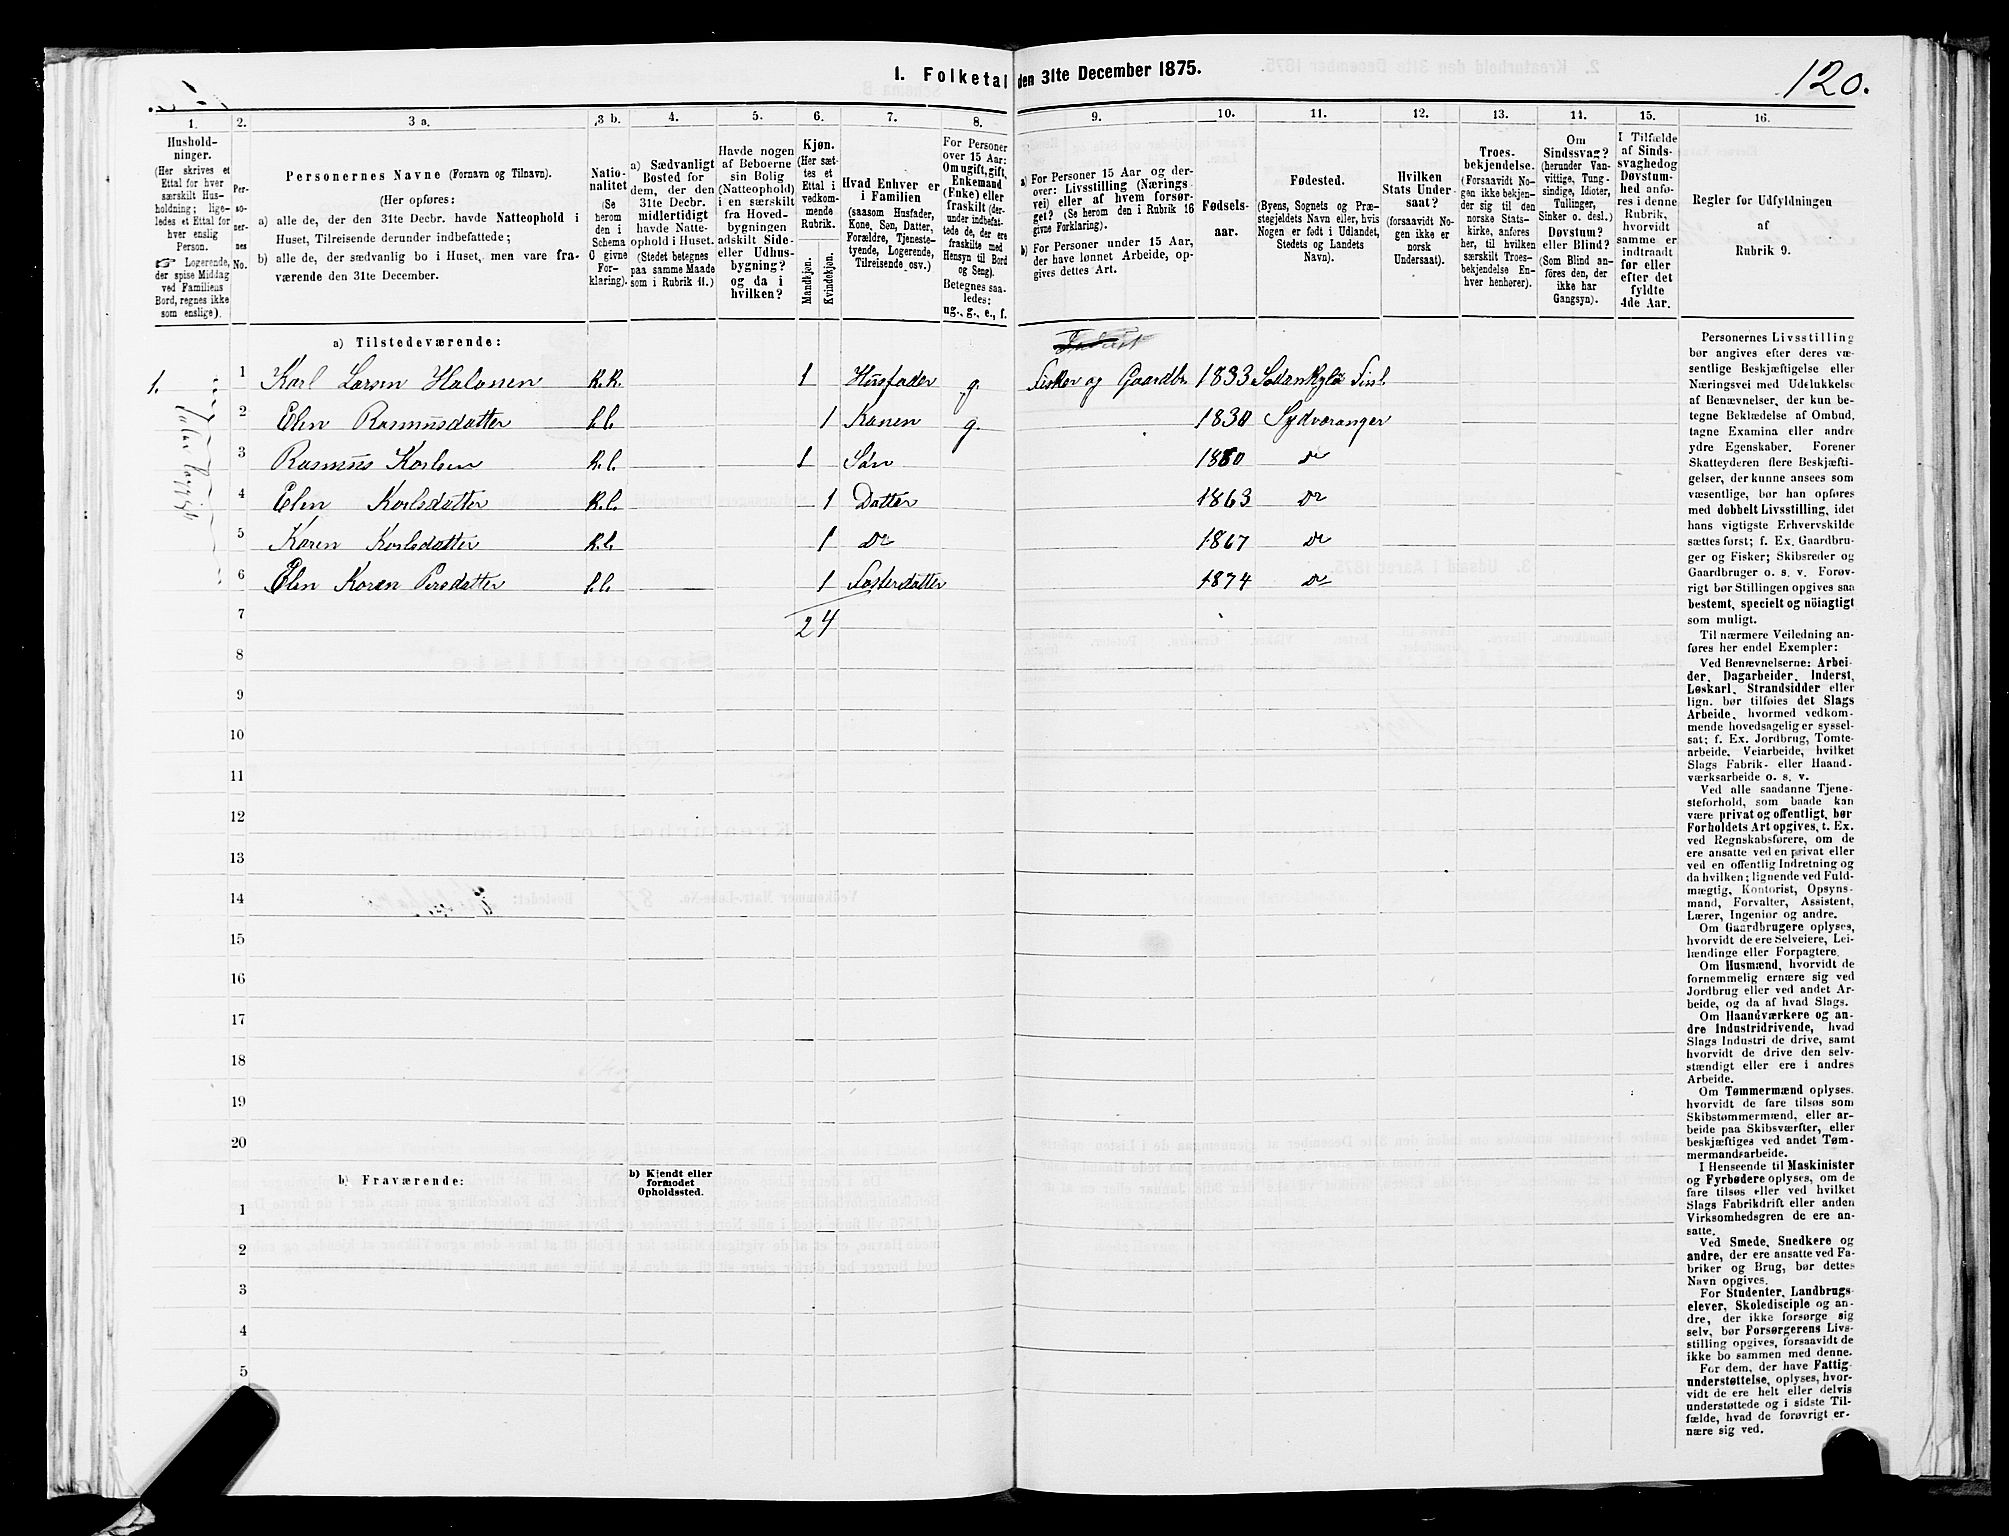 1. Folketal den 31te December 1875.
120.
1.
2.
3 a.
3 b.
4.
5.
6.
7.
8.
9.
10.
11.
12.
13.
14.
15.
16.
Hushold-
ninger.
(Her skrives et
Ettal for hver
særskilt Hus-
holdning; lige-
ledes et Ettal for
hver enslig
Person.
☞ Logerende,
der spise Middag
ved Familiens
Bord, regnes ikke
som enslige).
Per-
so-
ner-
nes
No.
Personernes Navne (Fornavn og Tilnavn).
(Her opføres:
a) alle de, der den 31te Decbr. havde Natteophold i
Huset, Tilreisende derunder indbefattede;
b) alle de, der sædvanlig bo i Huset, men vare fra-
værende den 31te December.
Natio-
nalitet
(Se
herom
den i
Schema
C givne
For-
klaring).
a) Sædvanligt
Bosted for
dem, der den
31te Decbr.
midlertidigt
havde Natte-
ophold i Huset.
(Stedet betegnes
paa samme Maade
som i Rubrik 11.)
Havde nogen
af Beboerne
sin Bolig
(Natteophold)
i en særskilt
fra Hoved-
bygningen
adskilt Side-
eller Udhus-
bygning?
og da i
hvilken?
Kjøn.
(Her sæt-
tes et
Ettal i
vedkom-
mende
Rubrik.
Mandkjøn.
Kvindekjøn.
Hvad Enhver er
i Familien
(saasom Husfader,
Kone, Søn, Datter,
Forældre, Tjeneste-
tyende, Logerende,
Tilreisende osv.)
For Personer
over 15 Aar:
Om ugift, gift,
Enkemand
(Enke) eller
fraskilt (der-
under indbefat-
tede de, der ere
fraskilte med
Hensyn til Bord
og Seng).
Betegnes saa-
ledes:
ug., g., e., f.
a) For Personer 15 Aar og der-
over: Livsstilling (Nærings-
vei) eller af hvem forsør-
get? (Se herom den i Rubrik 16
givne Forklaring).
b) For Personer under 15 Aar,
der have lønnet Arbeide, op-
gives dettes Art.
Fødsels-
aar.
Fødested.
(Byens, Sognets og Præ-
stegjeldets Navn eller, hvis
Nogen er født i Udlandet,
Stedets og Landets
Navn).
Hvilken
Stats Under-
saat?
(forsaavidt No-
gen ikke er
norsk
Undersaat).
Troes-
bekjendelse.
(Forsaavidt No-
gen ikke bekjen-
der sig til den
norske Stats-
kirke, anføres
her, til hvilken
særskilt Troes-
bekjendelse En-
hver henhører).
Om
Sindssvag?
(herunder Van-
vittige, Tung-
sindige, Idioter,
Tullinger,
Sinker o. desl.)
Døvstum?
eller Blind?
(Som Blind an-
føres den, der
ikke har
Gangsyn).
I Tilfælde
af Sinds-
svaghed og
Døvstum-
hed anfø-
res i denne
Rubrik,
hvorvidt
samme er
indtraadt
før eller
efter det
fyldte
4de Aar.
Regler for Udfyldningen
af
Rubrik 9.
a) Tilstedeværende:
1. 1 Karl Larsen Halonen k.k. 1 Husfader g. Fisker og Gaardbr. 1833 Sodankylä Finl.
2 Elen Rasmusdatter l.l. 1 Konen g. 1830 Sydvaranger
3 Rasmus Karlsen k.l. 1 Søn 1860 do
4 Elen Karlsdatter k.l. 1 Datter 1863 do
5 Karen Karlsdatter k.l. 1 do 1867 do
6 Elen Karen Persdatter l.l. 1 Fosterdatter 1874 do
7 2 4
8
9
10
11
12
13
14
15
16
17
18
19
20
b) Fraværende:
b) Kjendt eller
formodet
Opholdssted.
1
2
3
4
5
Personernes Livsstilling
bør angives efter deres væ-
sentlige Beskjæftigelse eller
Næringsvei med Udelukkelse
af Benævnelser, der kun be-
tegne Beklædelse af Ombud,
tagne Examina eller andre
ydre Egenskaber. Forener
Skatteyderen flere Beskjæfti-
gelser, der kunne ansees som
væsentlige, bør han opføres
med dobbelt Livsstilling, idet
hans vigtigste Erhvervskilde
sættes først; f. Ex. Gaardbru-
ger og Fisker; Skibsreder og
Gaardbruger o. s. v. Forøv-
rigt bør Stillingen opgives saa
bestemt, specielt og nöiagtigt
som muligt.
Til nærmere Veiledning an-
føres her endel Exempler:
Ved Benævnelserne: Arbei-
der, Dagarbeider, Inderst,
Løskarl, Strandsidder eller
lign. bør tilføies det Slags
Arbeide, hvormed vedkom-
mende hovedsagelig er syssel-
sat; f. Ex. Jordbrug, Tomte-
arbeide, Veiarbeide, hvilket
Slags Fabrik- eller Haand-
værksarbeide o. s. v.
Ved alle saadanne Tjene-
steforhold, som baade kan
være privat og offentligt, bør
Forholdets Art opgives, t. Ex.
ved Regnskabsførere, om de
ere ansatte ved en privat eller
ved en offentlig Indretning og
da hvilken; lignende ved Fuld-
mægtig, Kontorist, Opsyns-
mand, Forvalter, Assistent,
Lærer, Ingeniør og andre.
Om Gaardbrugere oplyses,
hvorvidt de ere Selveiere, Lei-
lændinge eller Forpagtere.
Om Husmænd, hvorvidt de
fornemmelig ernære sig ved
Jordbrug eller ved andet Ar-
beide, og da af hvad Slags.
Om Haandværkere og an-
dre Industridrivende, hvad
Slags Industri de drive, samt
hvorvidt de drive den selv-
stændigt eller ere i andres
Arbeide.
Om Tømmermænd oplyses,
hvorvidt de fare tilsøs som
Skibstømmermænd, eller ar-
beide paa Skibsværfter, eller
beskjæftiges ved andet Tøm-
mermandsarbeide.
I Henseende til Maskinister
og Fyrbødere oplyses, om de
fare tilsøs eller ved hvilket
Slags Fabrikdrift eller anden
Virksomhedsgren de ere an-
satte.
Ved Smede, Snedkere og
andre, der ere ansatte ved Fa-
briker og Brug, bør dettes
Navn opgives.
For Studenter, Landbrugs-
elever, Skoledisciple og an-
dre, der ikke forsørge sig
selv, bør Forsørgerens Livs-
stilling opgives, forsaavidt de
ikke bo sammen med denne.
For dem, der have Fattig-
understøttelse, oplyses, hvor-
vidt de ere helt eller delvis
understøttede og i sidste Til-
fælde, hvad de forøvrigt er-
nære sig ved.